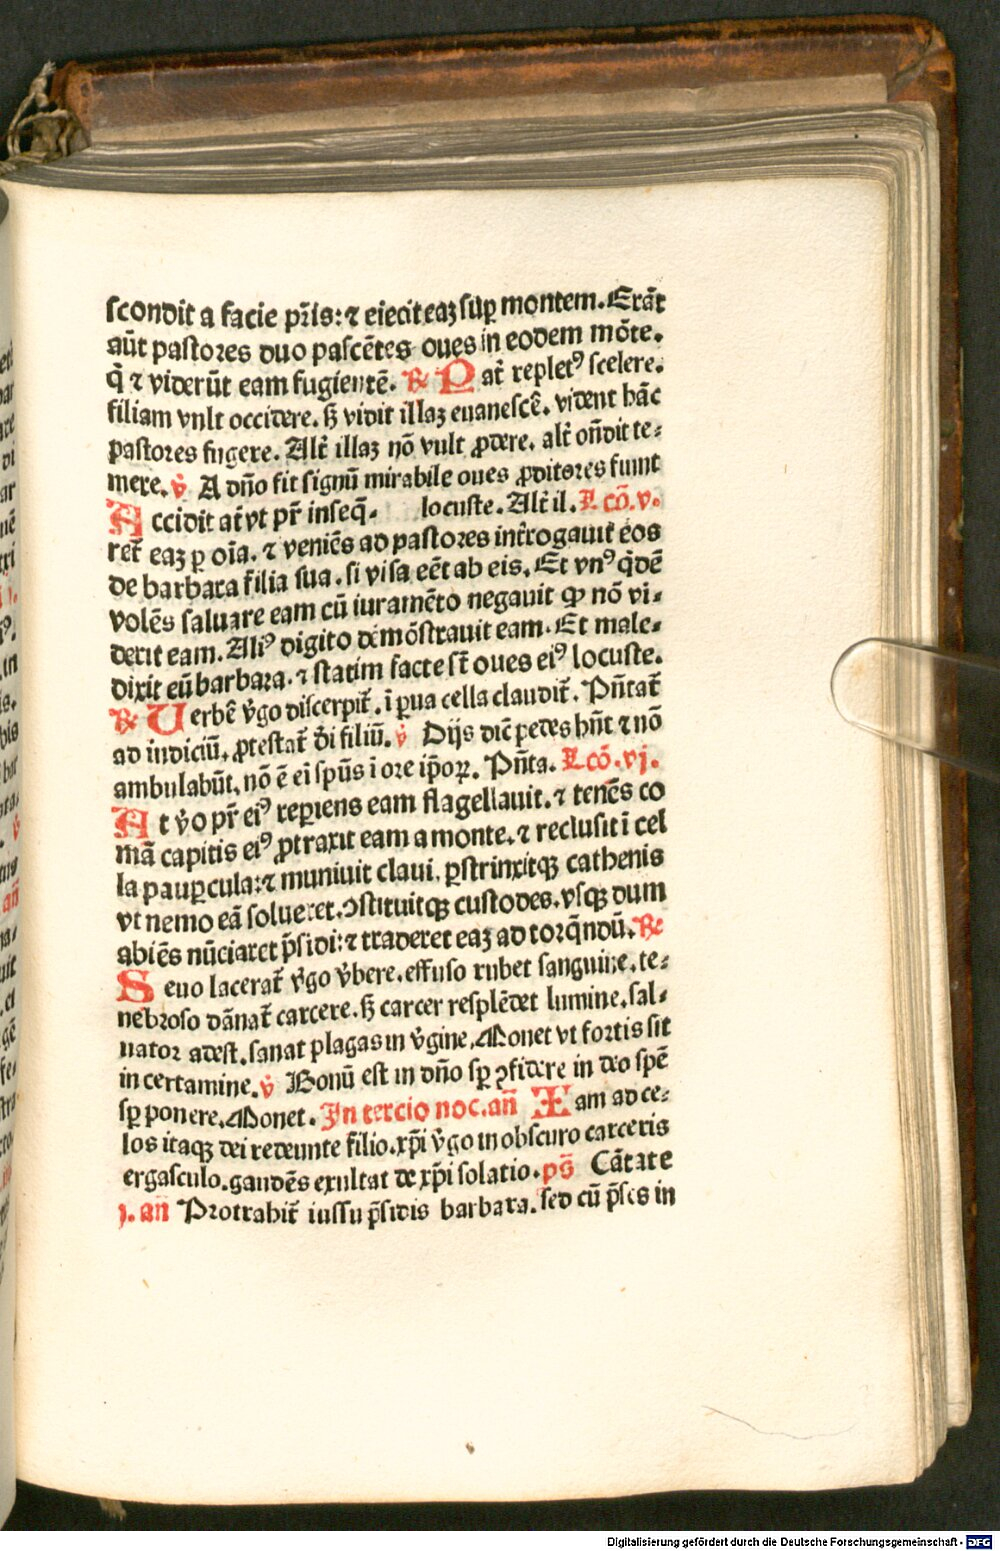 scondit a facie pr̄is: ⁊ eiecit eaꝫ suꝑ montem. Erāt
aūt pastores duo pascētes oues in eodem mōte.
q̇ ⁊ viderūt eam fugientē. ℟ Pat̄ repletꝰ scelere.
filiam vult occidere. sꝫ vidit illaꝫ euanescē. vident hāc
pastores fugere. Alt̄ illaꝫ nō vult ꝓdere. alt̄ oñdit te⸗
mere. v̇ A dño fit signū mirabile oues ꝓditores fiunt
Accidit at̄ vt pr̄ inseq̄⸗ locuste. Alt̄ il. Lcō. v.
ret̄ eaꝫ ꝑ oīa. ⁊ veniēs ad pastores int̄rogauit eos
de barbara filia sua. si visa eēt ab eis. Et vnꝰ q̇dē
volēs saluare eam cū iuramēto negauit ꝙ nō vi⸗
derit eam. Aliꝰ digito demōstrauit eam. Et male⸗
dixit eū barbara. ⁊ statim facte st̄ oues eiꝰ locuste.
℟ Uerbē v̇go discerpit̄. ī ꝑua cella claudit̄. Pñtat̄
ad iudiciū. ꝓtestat̄ d̄i filiū. v̇ Dijs dic̄ pedes hñt ⁊ nō
ambulabūt. nō ē ei spūs ī ore ip̄oꝝ. Pñta. Lcō. vj.
At v̇o pr̄ eiꝰ reꝑiens eam flagellauit. ⁊ tenēs co
mā capitis eiꝰ ꝓtraxit eam a monte. ⁊ reclusit ī cel
la pauꝑcula: ⁊ muniuit claui. ꝑstrinxitqꝫ cathenis
vt nemo eā solueret. ꝯstituitqꝫ custodes. vsqꝫ dum
abiēs nūciaret p̄sidi: ⁊ traderet eaꝫ ad torq̄ndū. ℟
Seuo lacerat̄ v̇go v̇bere. effuso rubet sanguine. te⸗
nebroso dānat̄ carcere. sꝫ carcer resplēdet lumine. sal⸗
uator adest. sanat plagas in v̇gine. Monet vt fortis sit
in certamine. v̇ Bonū est in dño sꝑ ꝯfidere in deo spē
sꝑ ponere. Monet. In tercio noc. añ Tam ad ce⸗
los itaqꝫ dei redeunte filio. xp̄i v̇go in obscuro carceris
ergasculo. gaudēs exultat de xp̄i solatio. ps̄ Cātate
j. añ Protrahit̄ iussu p̄sidis barbara. sed cū p̄ses in
Digitalisierung gefördert durch die Deutsche Forschungsgemeinschaft - DFG